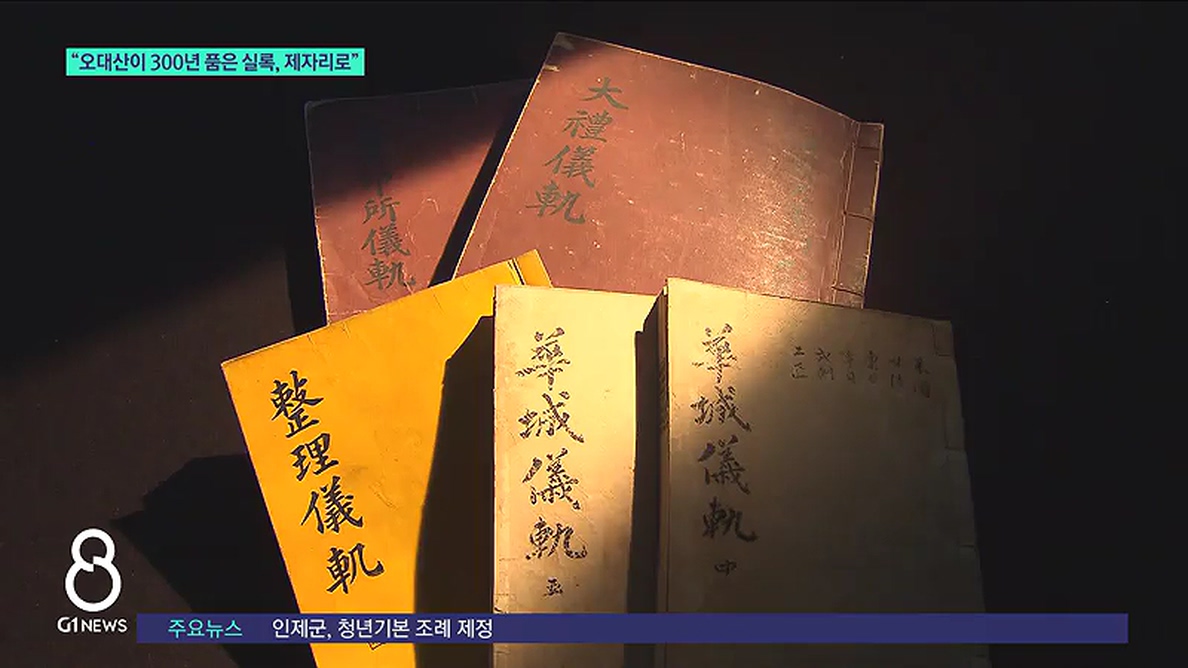 “오대산이 300년 품은 실록, 제자리로”
大禮儀軌
所儀軌
整理儀軌
華城儀軌
華城儀軌 中
8
G1 NEWS
주요뉴스 인제군, 청년기본 조례 제정